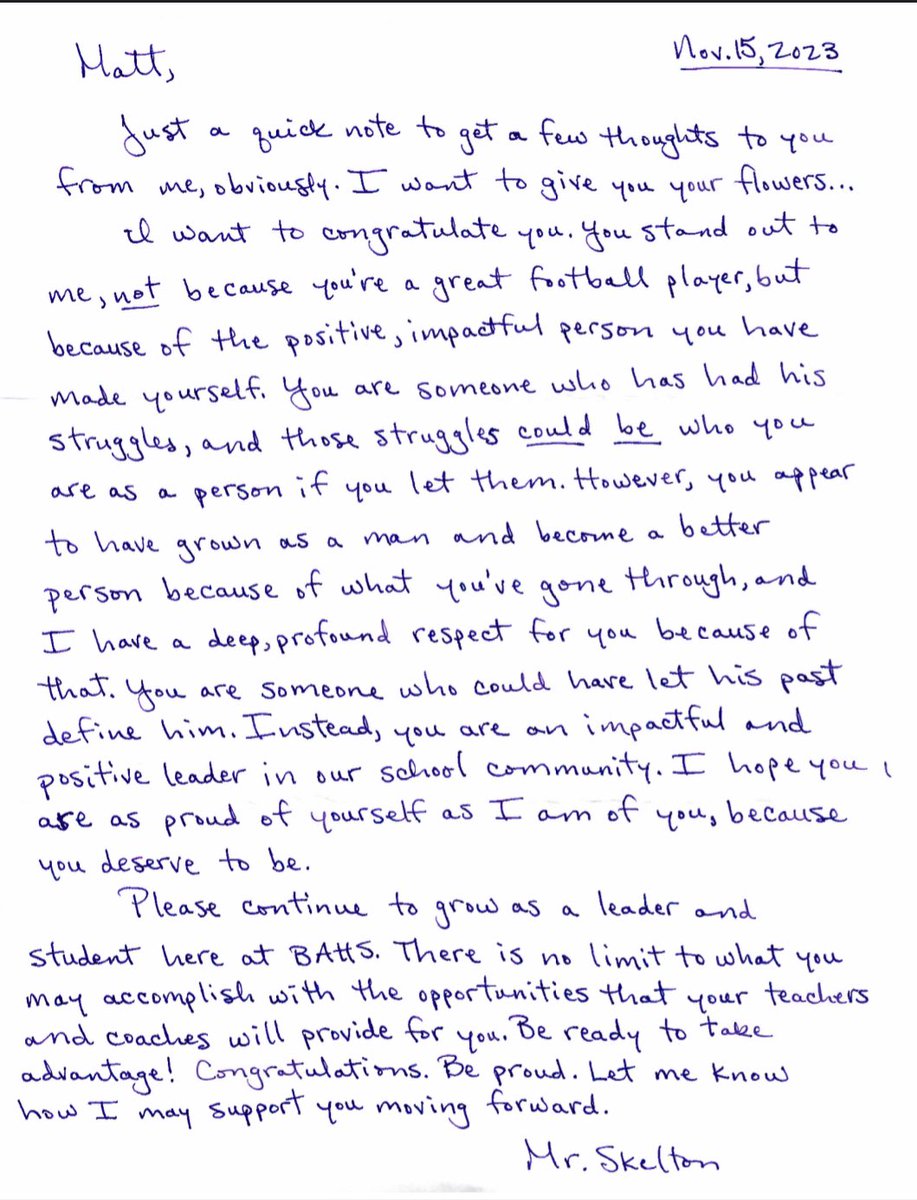 Matt,
Nov. 15, 2023
Just a quick note to get a few thoughts to you
from me, obviously. I want to give you your flowers...
I want to congratulate you. You stand out to
me, not because you're a great football player, but
because of the positive, impactful person you have
made yourself. You are someone who has had his
struggles, and those struggles could be who you
are as a person if you let them. However, you appear
to have grown as a man and become a better
person because of what you've gone through, and
I have a deep, profound respect for you because of
that. You are someone who could have let his past
define him. Instead, you are an impactful and
positive leader in our school community. I hope you
are as proud of yourself as I am of you, because
you deserve to be.
Please continue to grow as a leader and
student here at BAHS. There is no limit to what you
may accomplish with the opportunities that your teachers
and coaches will provide for you. Be ready to take
advantage! Congratulations. Be proud. Let me know
how I may support you moving forward.
Mr. Skelton